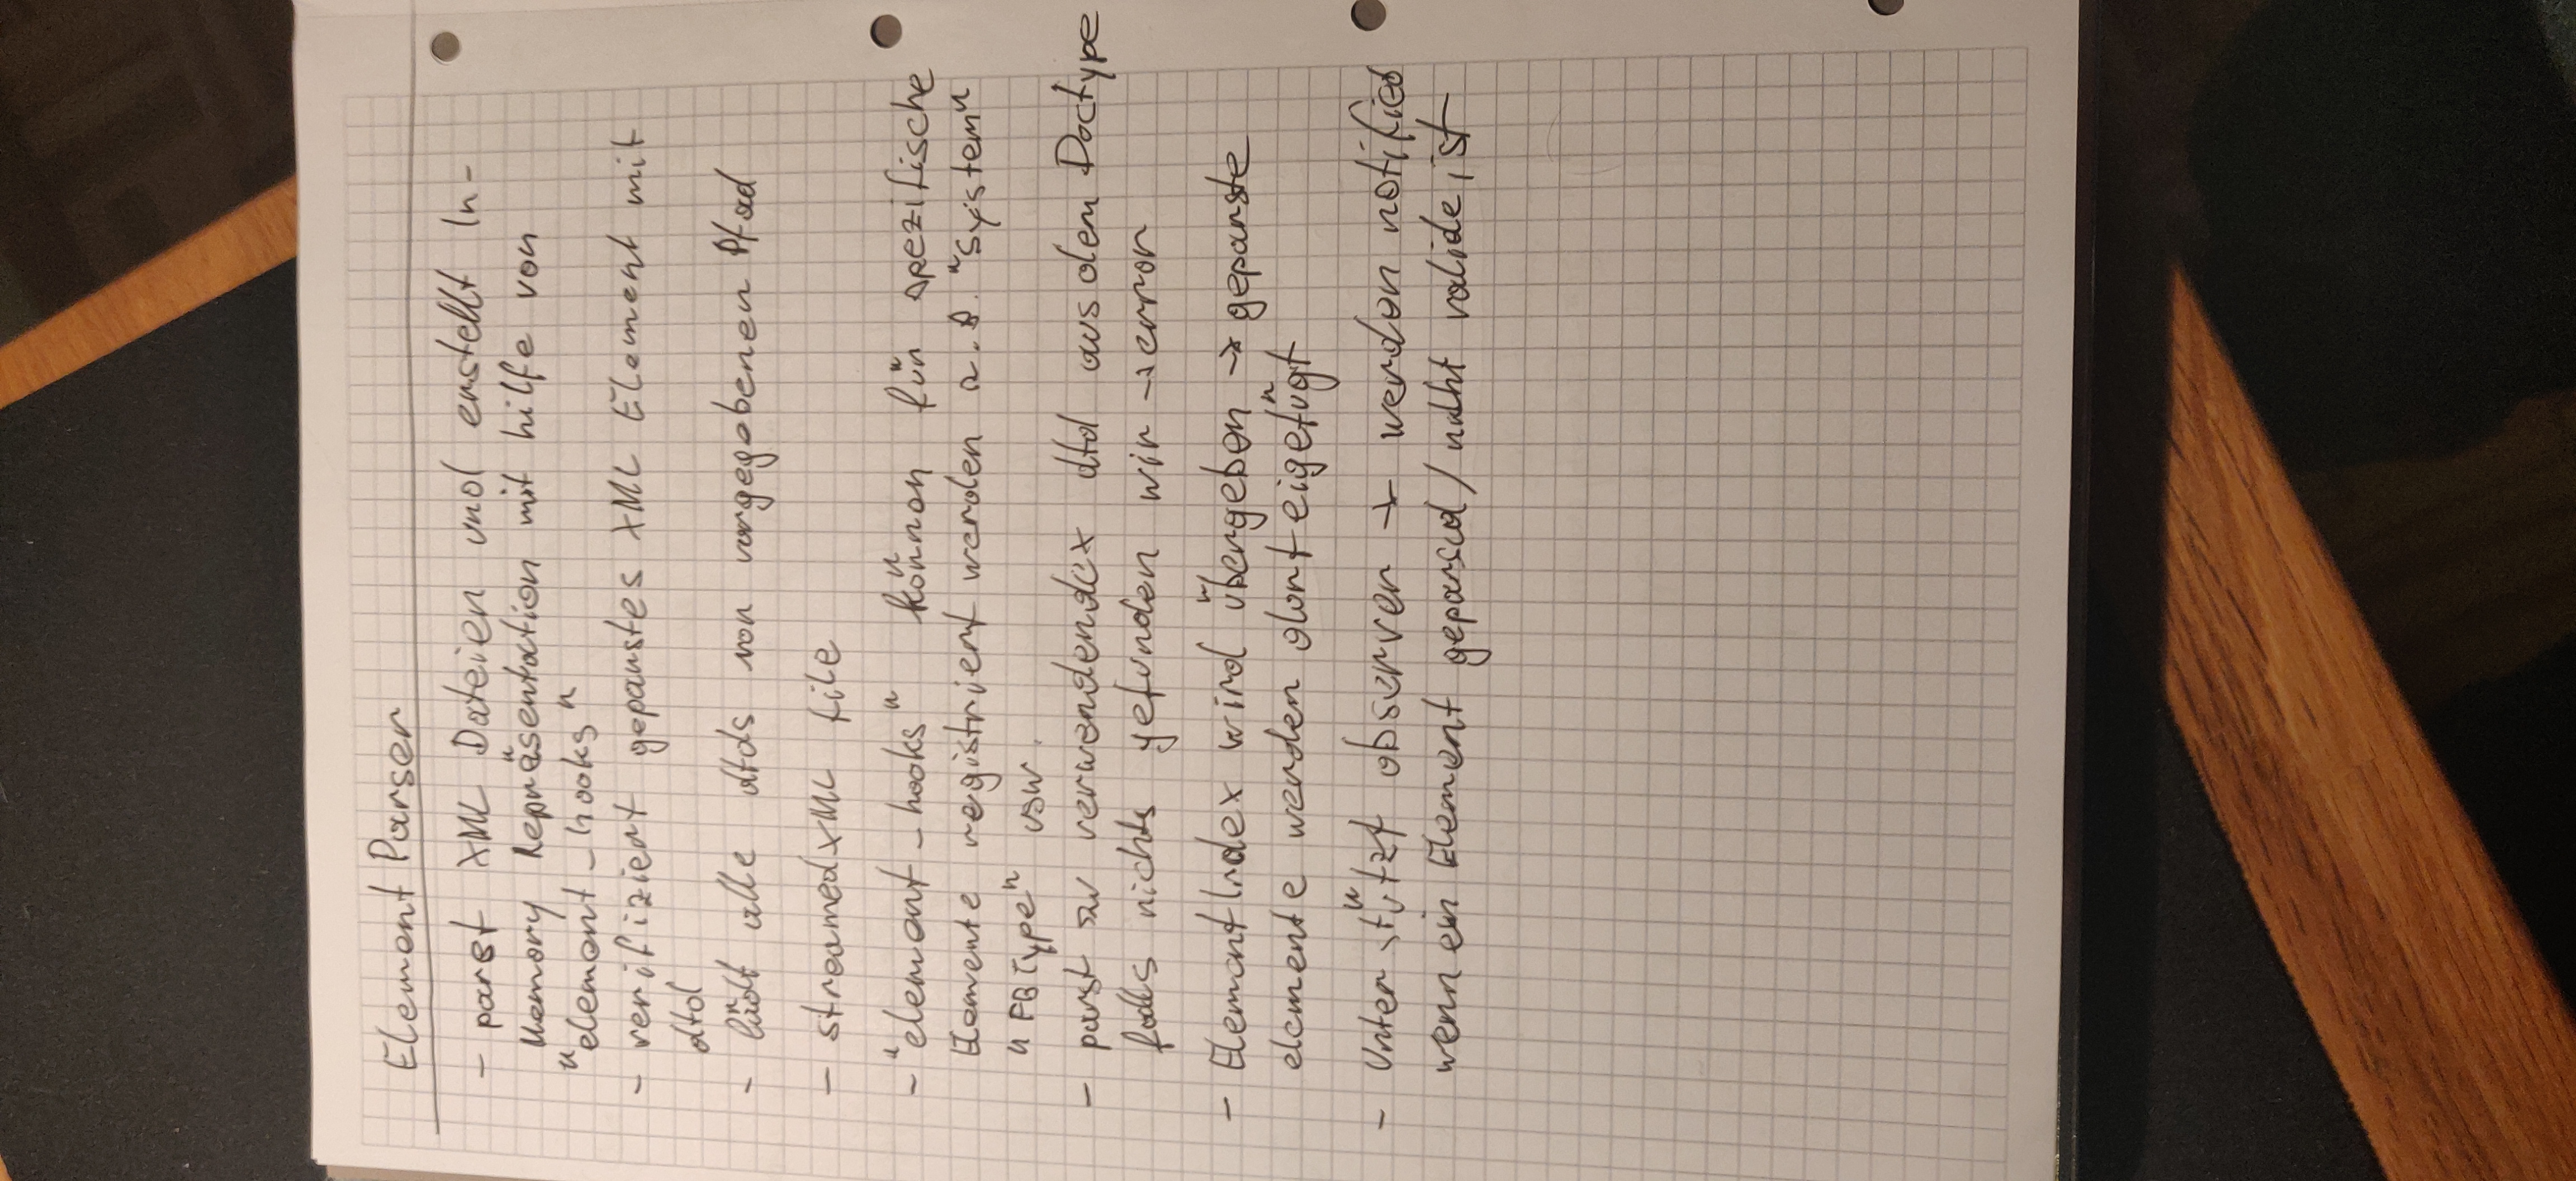 Element Parser
- parst XML Dateien und erstellt In-
Memory Repräsentation mit hilfe von
"element-hooks"
- verifiziert geparstes XML Element mit
dtd
- lädt alle dtds von vorgegebenen Pfad
- streamed XML file
- "element-hooks" können für spezifische
Elemente registriert werden z.B. "System"
"FBType" usw.
- parst zu verwendendex dtd aus dem Doctype
falls nichts gefunden wir → error
- ElementIndex wird übergeben → geparste
elemente werden dort eigefügt
- Unterstützt observer → werden notified
wenn ein Element geparsed / nicht valide ist